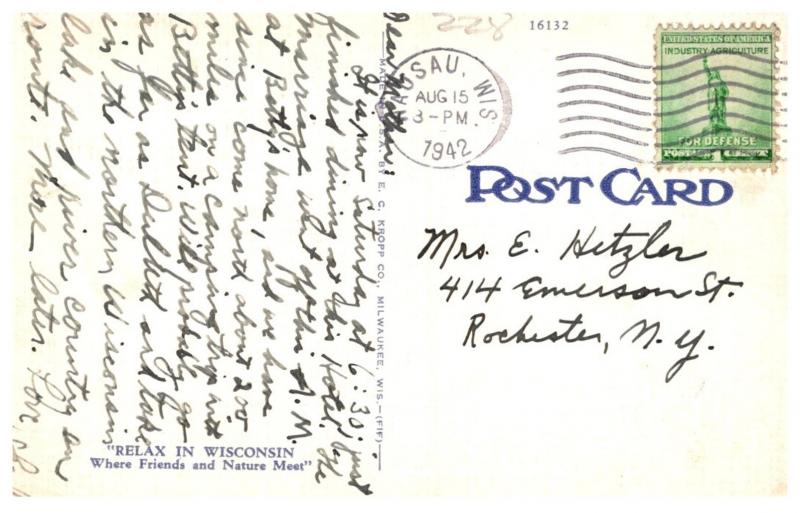 228
16132
WAUSAU, WIS.
AUG 15
3-PM
1942
UNITED STATES OF AMERICA
INDUSTRY AGRICULTURE
FOR DEFENSE
POSTAGE 1 CENT
POST CARD
Mrs. E. Hetzler
414 Emerson St.
Rochester, N.Y.
Dear Mother:
It is now Saturday at 6:30; just
finished dining at this Hotel. The
marriage went off this A.M.
at Betty's home, and we have
since come north about 200
miles on a camping trip with
Betty's tent. Will probably go
as far as Duluth and take
in the northern Wisconsin
lake and river country en
route. More later. Love,
MADE IN U.S.A. BY E. C. KROPP CO., MILWAUKEE, WIS.-(FIF)
"RELAX IN WISCONSIN
Where Friends and Nature Meet"